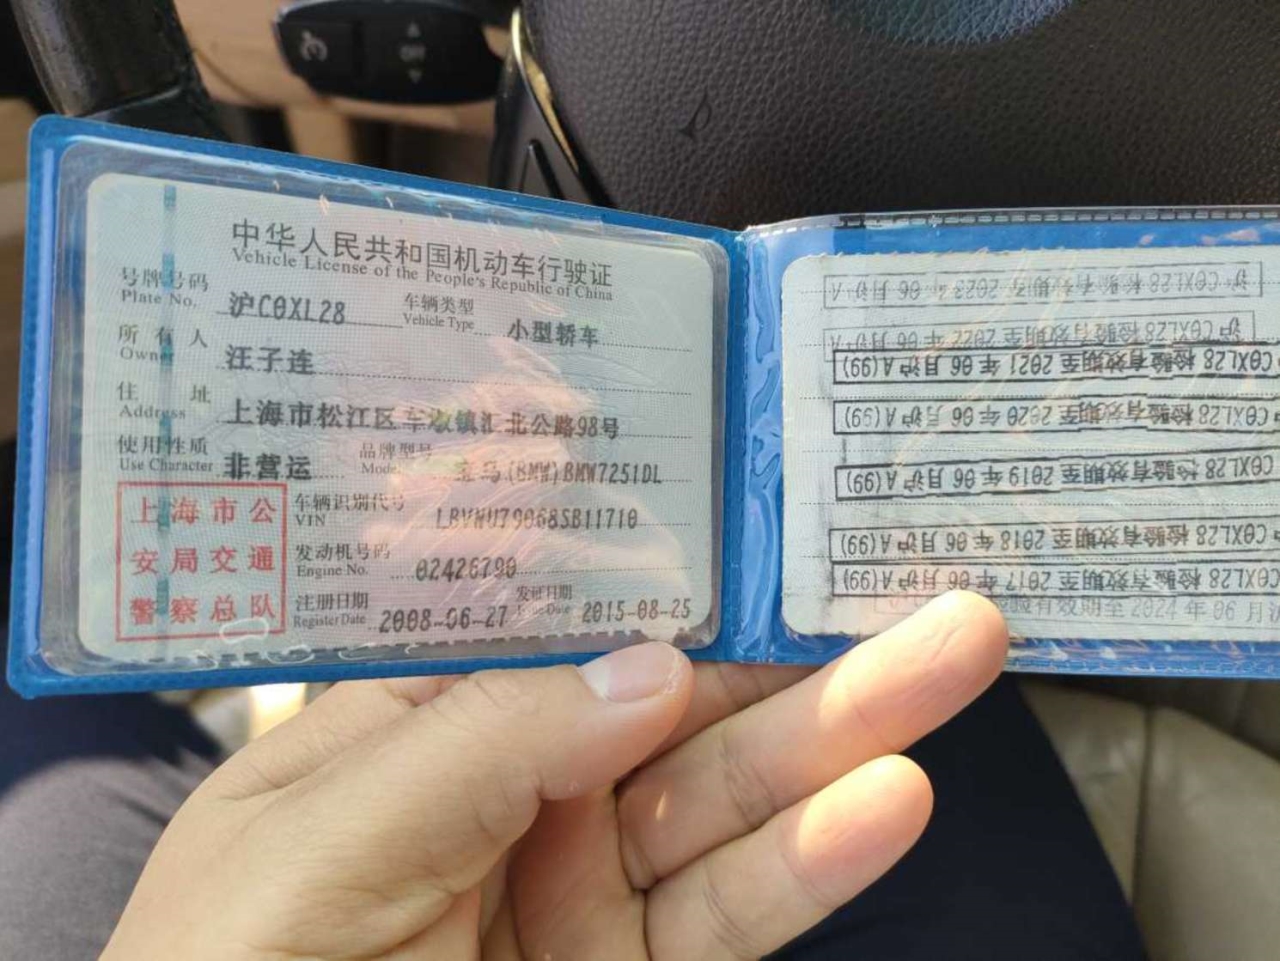 中华人民共和国机动车行驶证
Vehicle License of the People's Republic of China
号牌号码 沪C0XL28 车辆类型 小型轿车
Plate No. Vehicle Type
所有人 汪子连
Owner
住址 上海市松江区车墩镇汇北公路98号
Address
使用性质 非营运 品牌型号 宝马(BMW)BMW7251DL
Use Character Model
上海市公
安局交通
警察总队
车辆识别代号
VIN
发动机号码 02426790
Engine No.
注册日期 2008-06-27 发证日期 2015-08-25
Register Date Issue Date
沪C0XL28 检验有效期至 2023 年 06 月沪A
沪C0XL28 检验有效期至 2022 年 06 月沪A
C0XL28 检验有效期至 2021 年 06 月沪A(99)
C0XL28 检验有效期至 2020 年 06 月沪A(99)
C0XL28 检验有效期至 2019 年 06 月沪A(99)
C0XL28 检验有效期至 2018 年 06 月沪A(99)
C0XL28 检验有效期至 2017 年 06 月沪A(99)
检验有效期至 2024 年 06 月